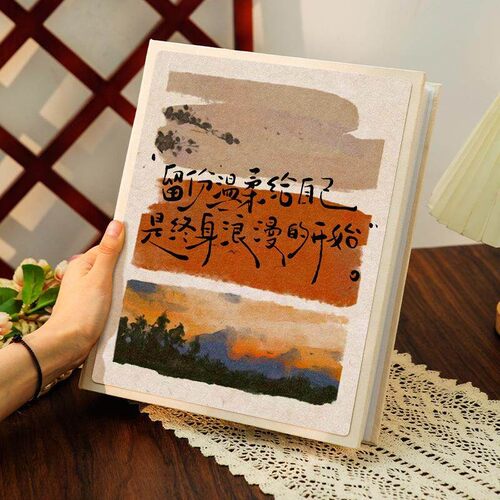 “留份温柔给自己
是终身浪漫的开始”。